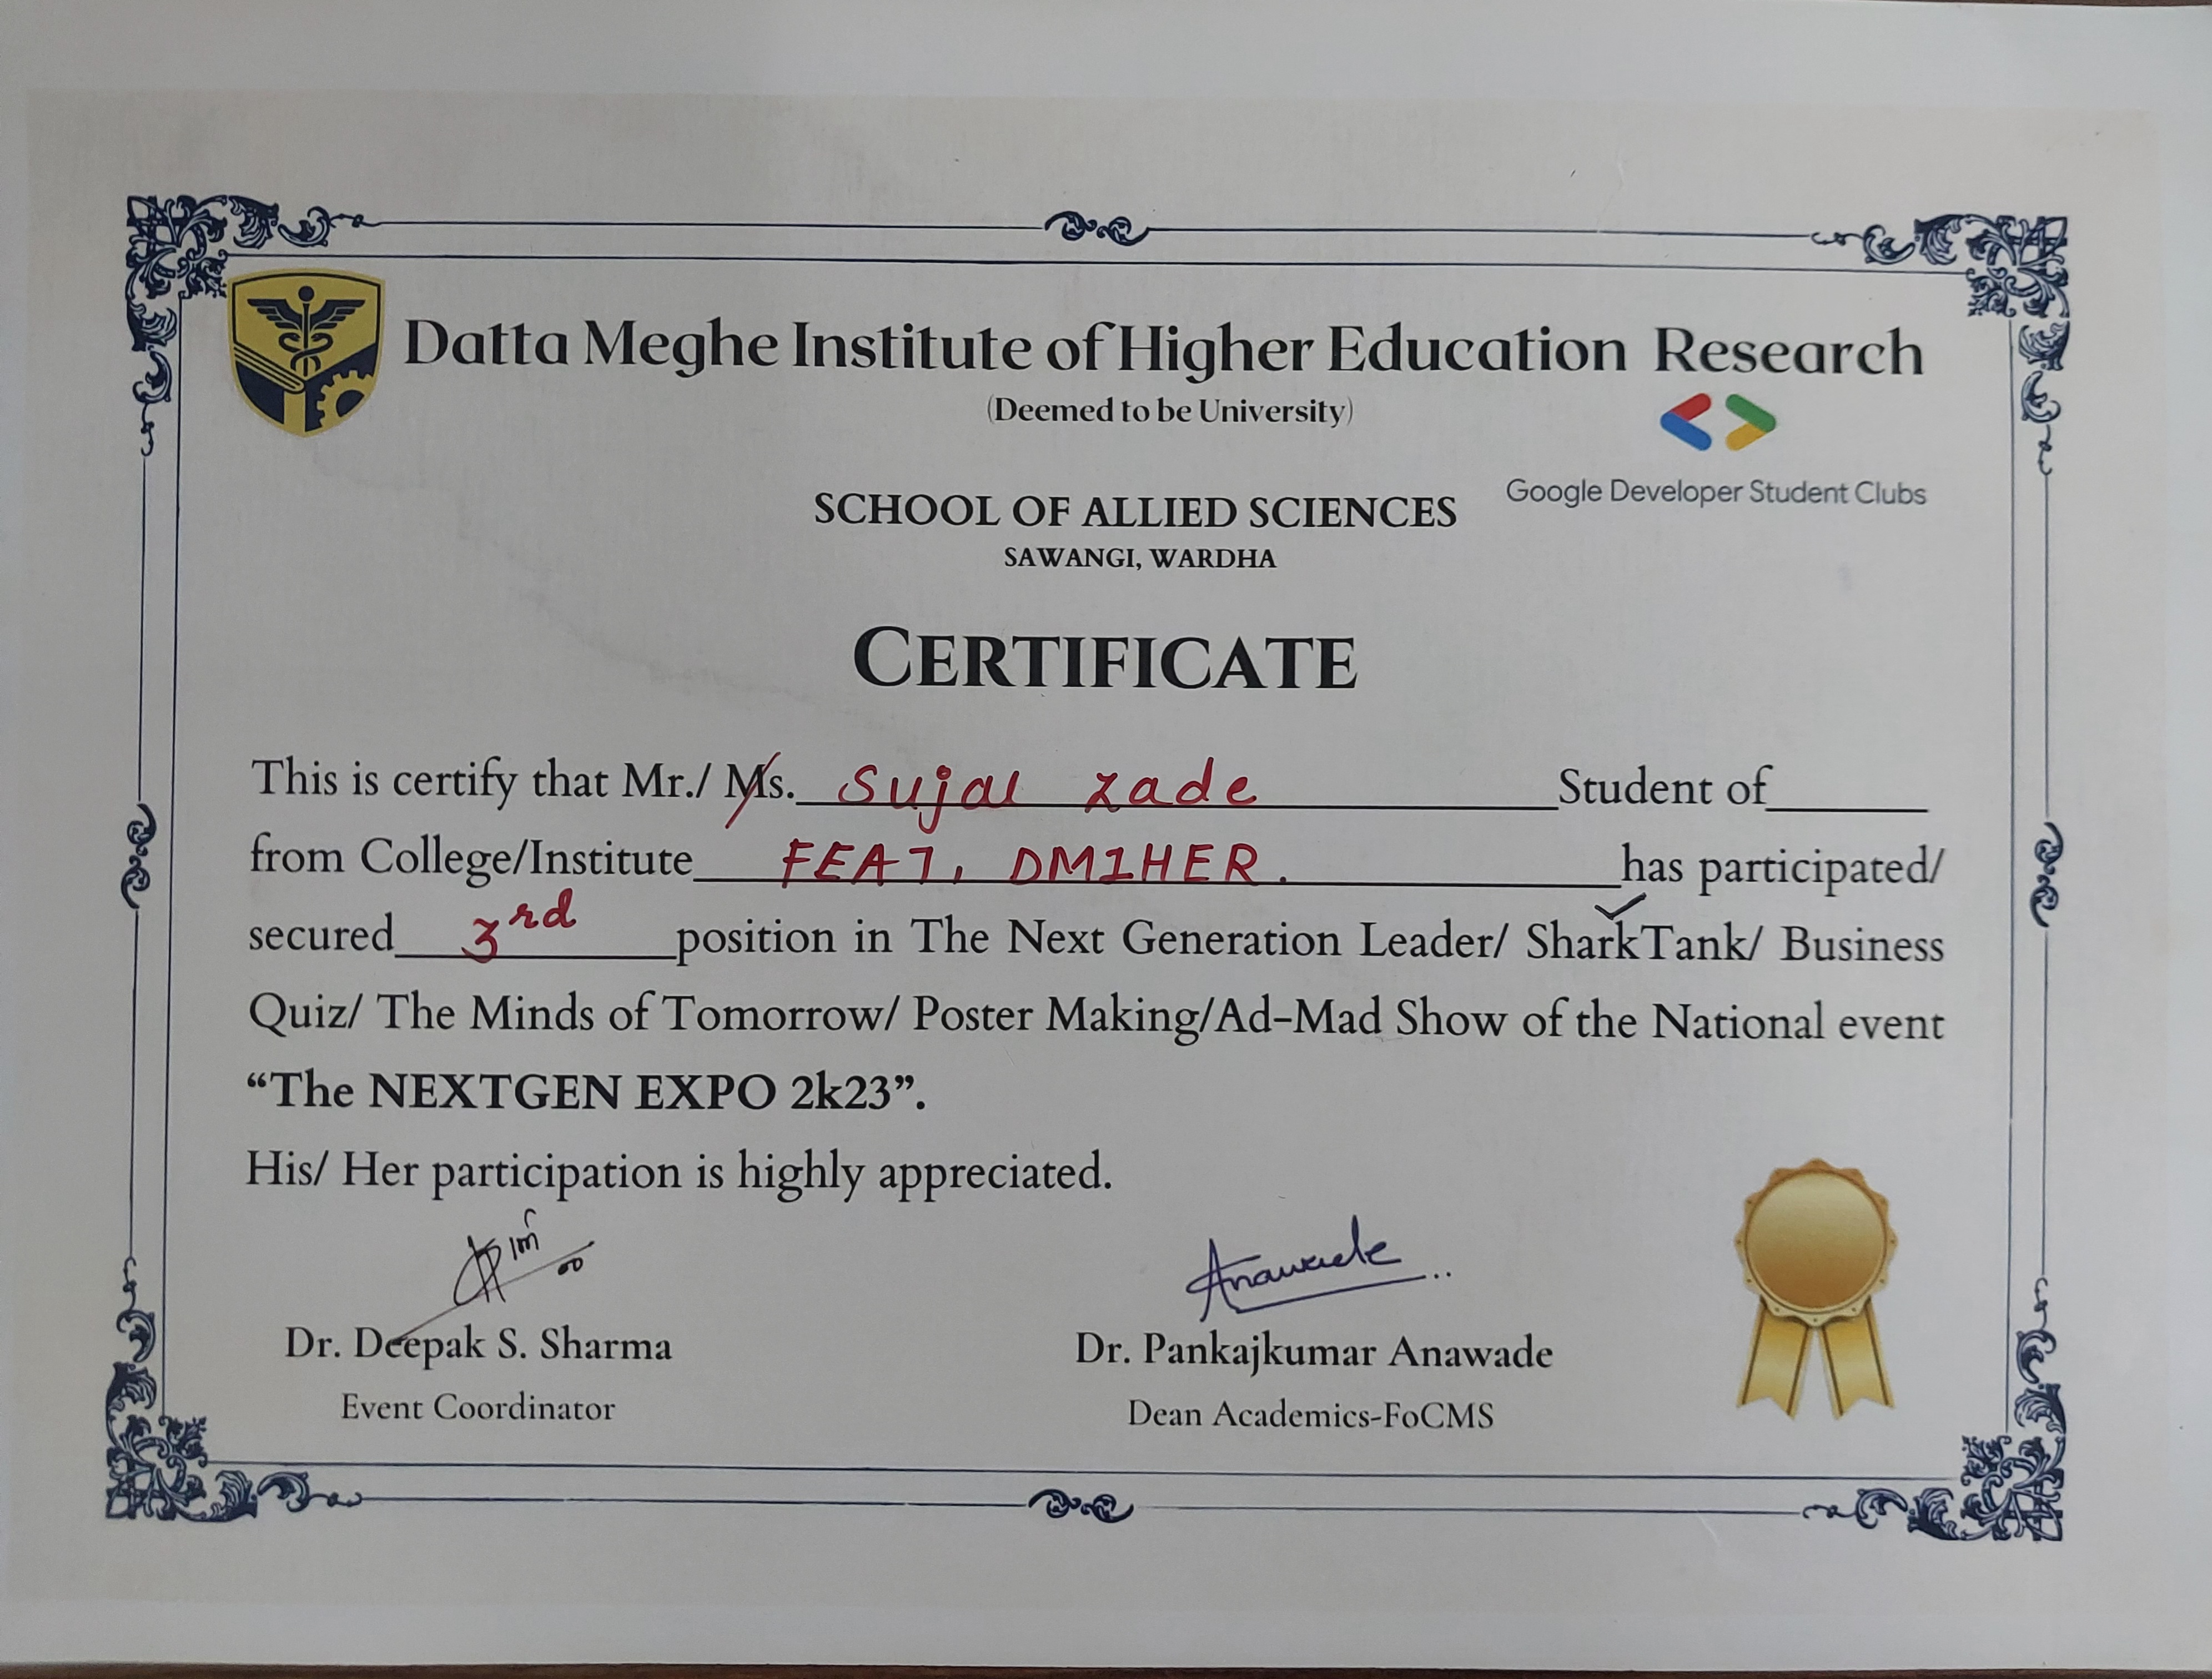 Datta Meghe Institute of Higher Education Research
(Deemed to be University)
Google Developer Student Clubs
SCHOOL OF ALLIED SCIENCES
SAWANGI, WARDHA
CERTIFICATE
This is certify that Mr./ Ms. Sujal Zade Student of
from College/Institute FEAT, DMIHER. has participated/
secured 3rd position in The Next Generation Leader/ SharkTank/ Business
Quiz/ The Minds of Tomorrow/ Poster Making/Ad-Mad Show of the National event
“The NEXTGEN EXPO 2k23”.
His/ Her participation is highly appreciated.
Anawade
Dr. Deepak S. Sharma
Dr. Pankajkumar Anawade
Event Coordinator
Dean Academics-FoCMS